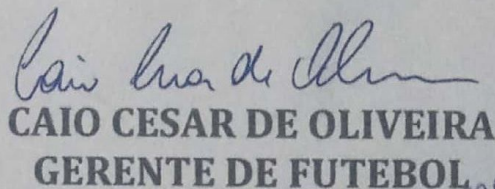 Caio Cesar de Oliveira
CAIO CESAR DE OLIVEIRA
GERENTE DE FUTEBOL